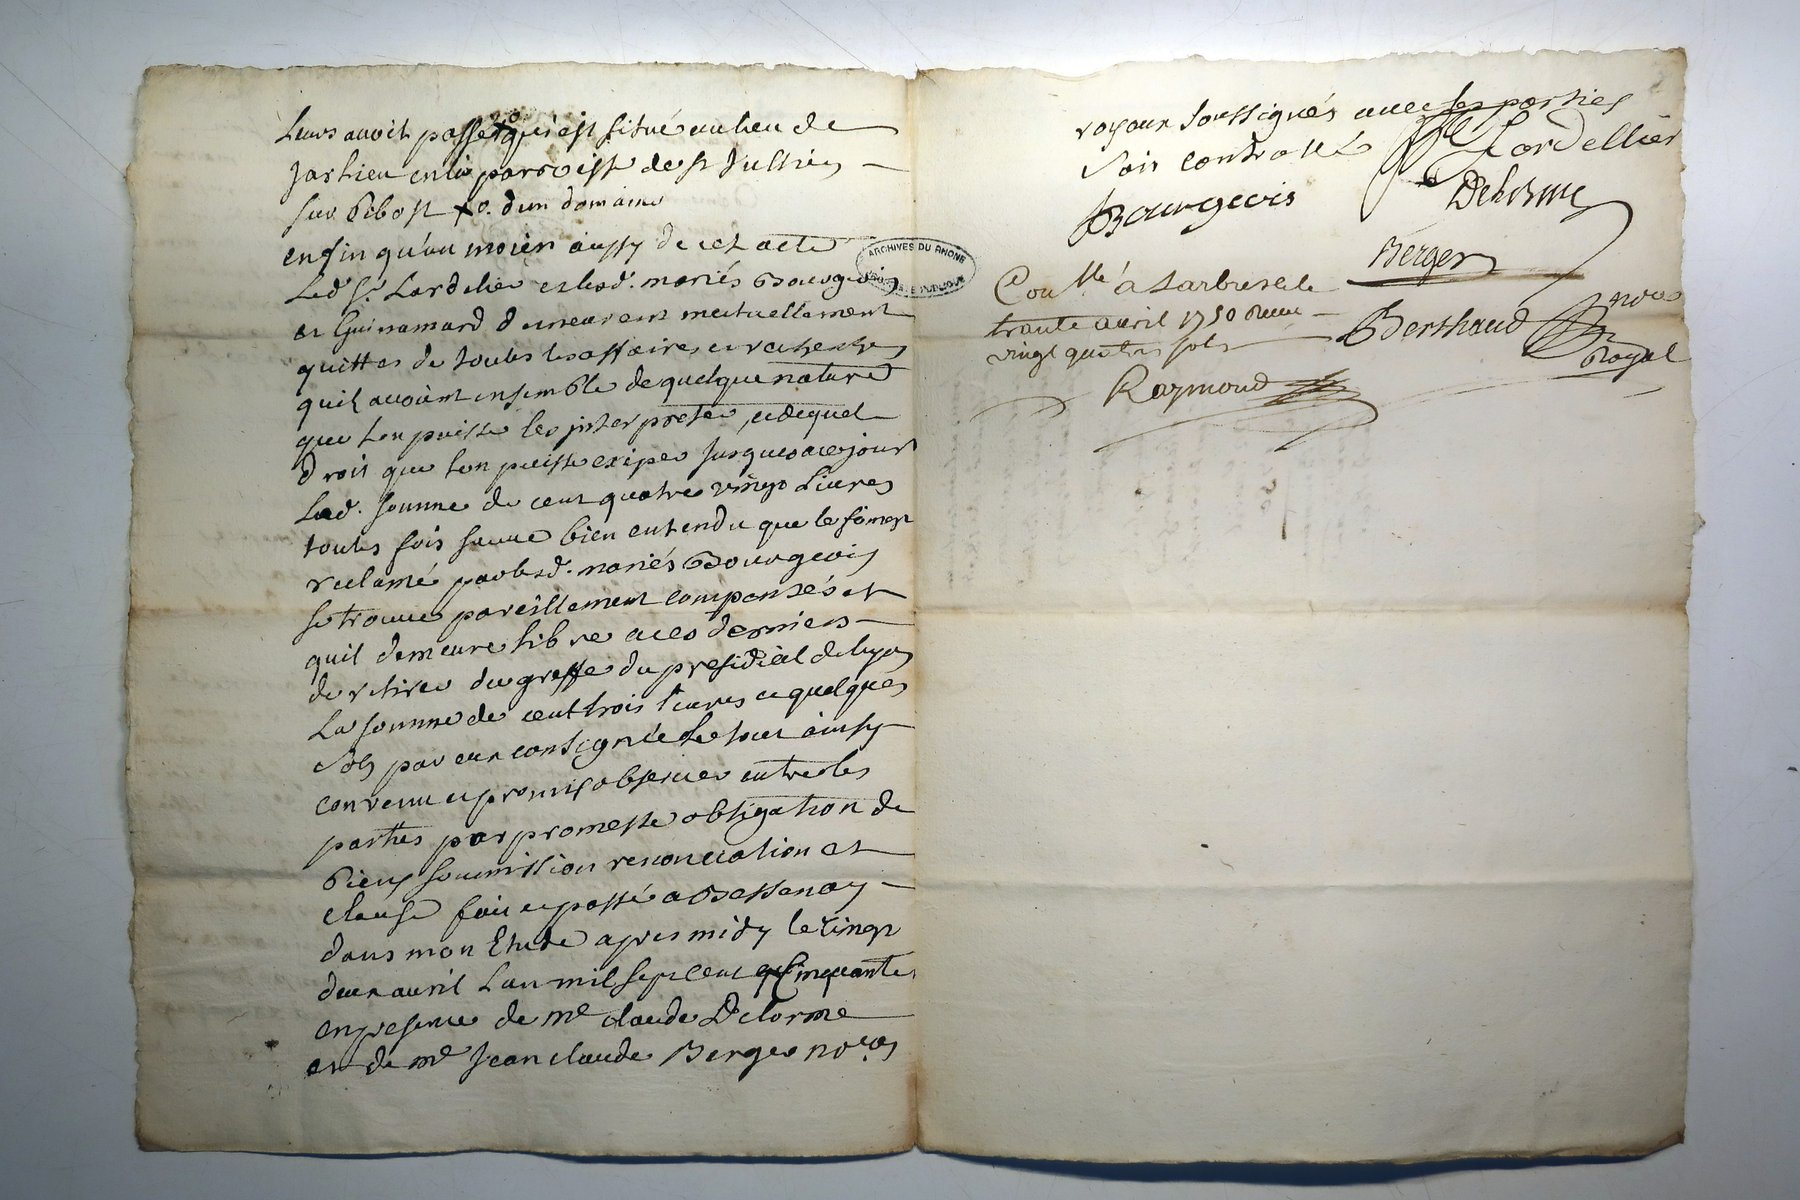 Leurs avoit passé qui est situé au lieu de
Jarlieu en la parroisse de st Jullien
sur Bibost xo. d'un domaine
enfin qu'au moien aussy de cet acte
Led. Sr. Lardelier et lesd. mariés Bourgeois
et Guinamard demeurent mutuellement
quittes de toutes les affaires et recherches
quil avoient ensemble de quelque nature
que lon puisse les interpreter, et de quel
droit que lon puisse exiper jusques a ce jour
Lad. somme de cent quatre vingt Livres
toutes fois sauve bien entendu que le
reclamé par lesd. mariés Bourgeois
se trouve pareillement compensés et
quil demeure libre a ces derniers
de retirer du greffe du presidial de Lyon
La somme de cent trois livres et quelques
sols par eux consignée Le tout ainsy
convenu et promis observer entre les
parties par promesse obligation de
biens soumission renonciation et
clause fait et passé a Bessenay
dans mon Etude apres midy le vingt
deux avril Lan mil sept cent cinquante
en presence de me claude Delorme
et de me Jean claude Berger nores
royaux soussignés avec les parties
soit controllé
Lardellier
Bourgeois
Delorme
Berger
ARCHIVES DU RHONE
Conllé a Larbresle le
trante avril 1750 Receu
vingt quatre sols
Berthaud nore
Royal
Raymond